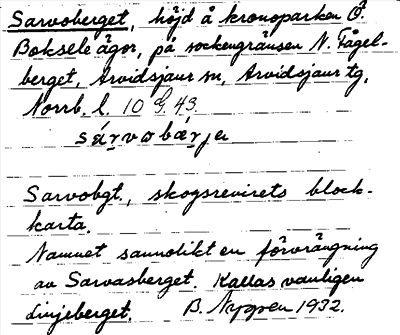 Sarvoberget, höjd å kronoparken Ö.
Boksele ägor, på sockengränsen N. Fågel-
berget, Arvidsjaur sn, Arvidsjaur tg,
Norrb. l. 10 G. 43.
sárvobærje
Sarvobgt., skogsrevirets block-
karta.
Namnet sannolikt en förvrängning
av Sarvasberget. Kallas vanligen
Linjeberget. B. Nygren 1932.